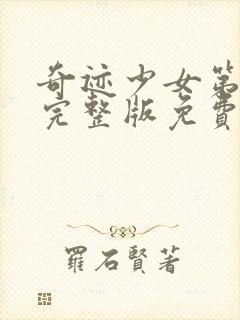 奇迹少女第
完整版免費
羅石賢著